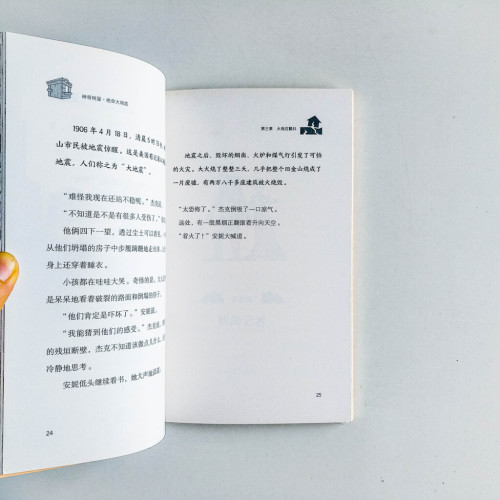 神奇树屋·绝命大地震
1906 年 4 月 18 日,清晨 5 时
山市民被地震惊醒。这是美国有史
地震,人们称之为“大地震”。
“难怪我现在还站不稳呢。”杰克
“不知道是不是有很多人受伤了。”
他俩四下一望,透过尘土可以看见,
从他们坍塌的房子中步履蹒跚地走出来,
身上还穿着睡衣。
小孩都在哇哇大哭。奇怪的是,大人
是呆呆地看着破裂的路面和倒塌的房子。
“他们肯定是吓坏了。”安妮说。
“我能猜到他们的感受。”杰克
的残垣断壁,杰克不知道该做点儿什么,
冷静地思考。
安妮低头继续看书,她大声地
24
第三章 火焰红艳日
地震之后,毁坏的烟囱、火炉和煤气灯引发了可怕
的火灾。大火烧了整整三天,几乎把整个旧金山烧成了
一片废墟,有两万八千多座建筑被火烧毁。
“太恐怖了。”杰克倒吸了一口凉气。
远处,有一股黑烟正翻滚着升向天空。
“着火了!”安妮大喊道。
25